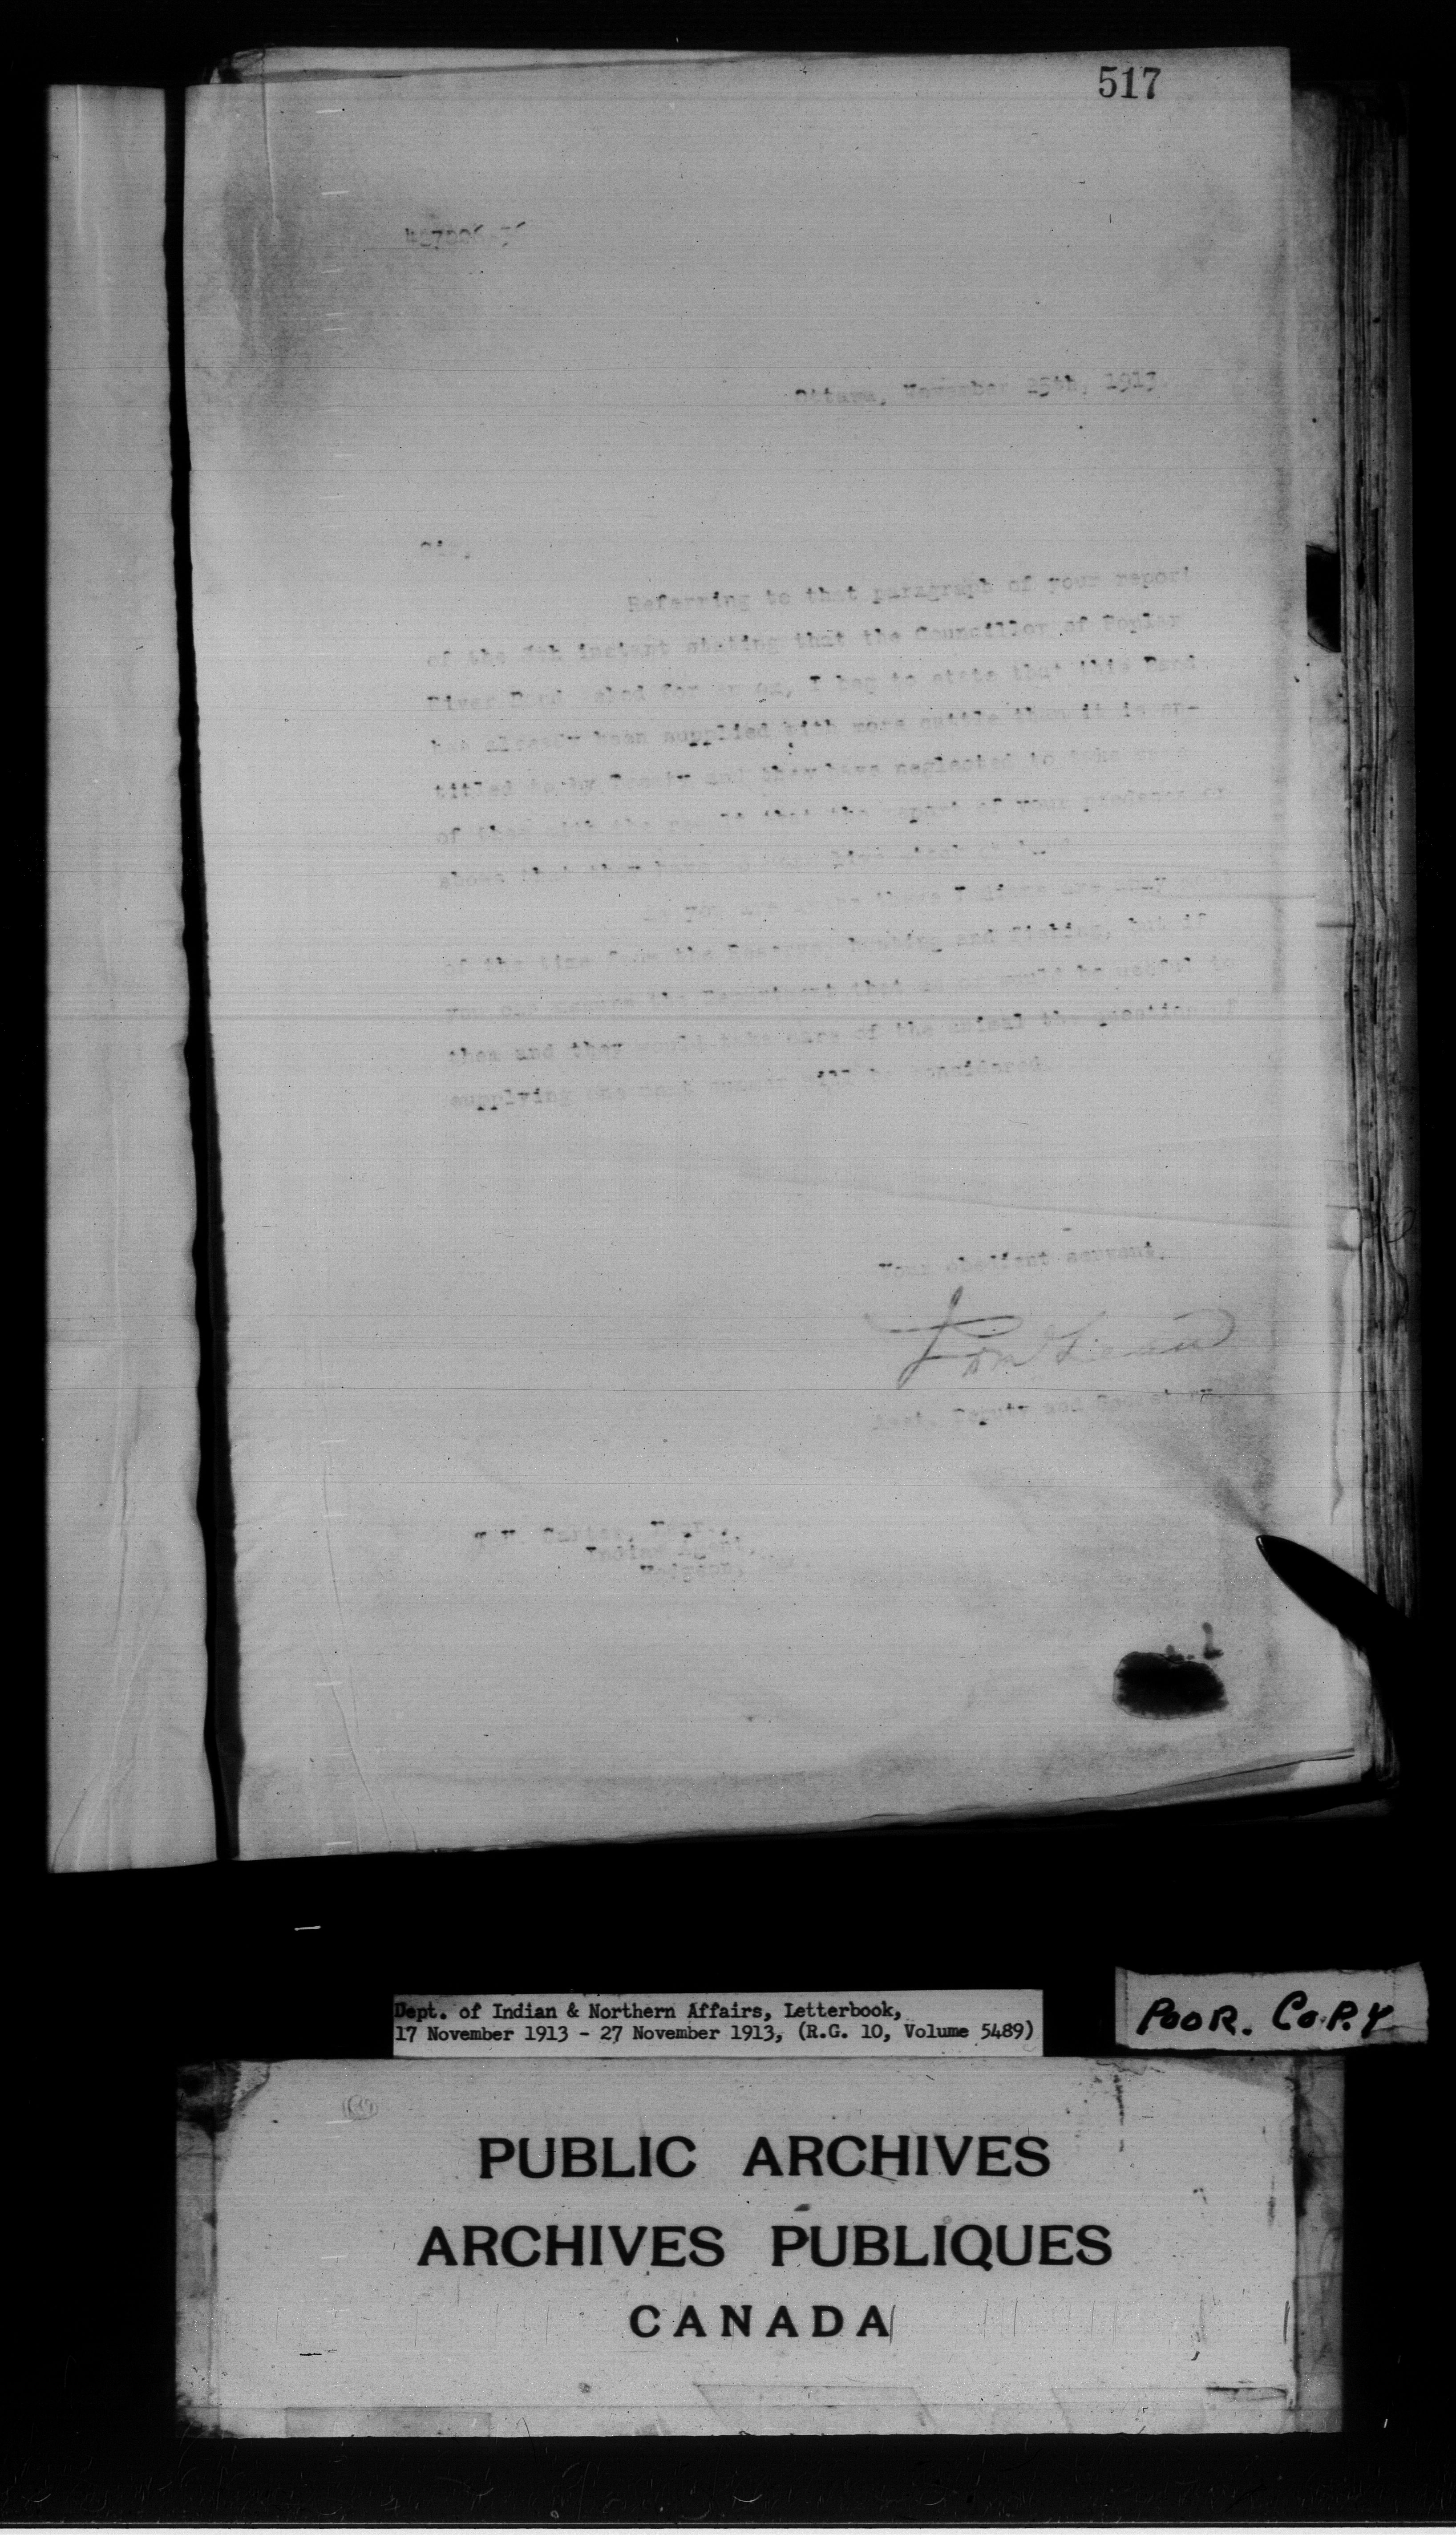 517
Ottawa, November 25th, 1913.
Sir,
Referring to that paragraph of your report
of the 8th instant stating that the Councillor of Poplar
River Band asked for an ox, I beg to state that this Band
has already been supplied with more cattle than it is en-
titled to by Treaty and they have neglected to take care
of them with the result that the report of your predecessor
shows that they have no more live stock on hand.
As you are aware these Indians are away most
of the time from the Reserve, hunting and fishing, but if
you can assure the Department that an ox would be useful to
them and they would take care of the animal the question of
supplying one next summer will be considered.
Your obedient servant,
Asst. Deputy and Secretary.
Carter, Esqr.,
Indian Agent,
Hodgson, Man.
Dept. of Indian & Northern Affairs, Letterbook,
17 November 1913 - 27 November 1913, (R.G. 10, Volume 5489)
POOR. COPY
PUBLIC ARCHIVES
ARCHIVES PUBLIQUES
CANADA